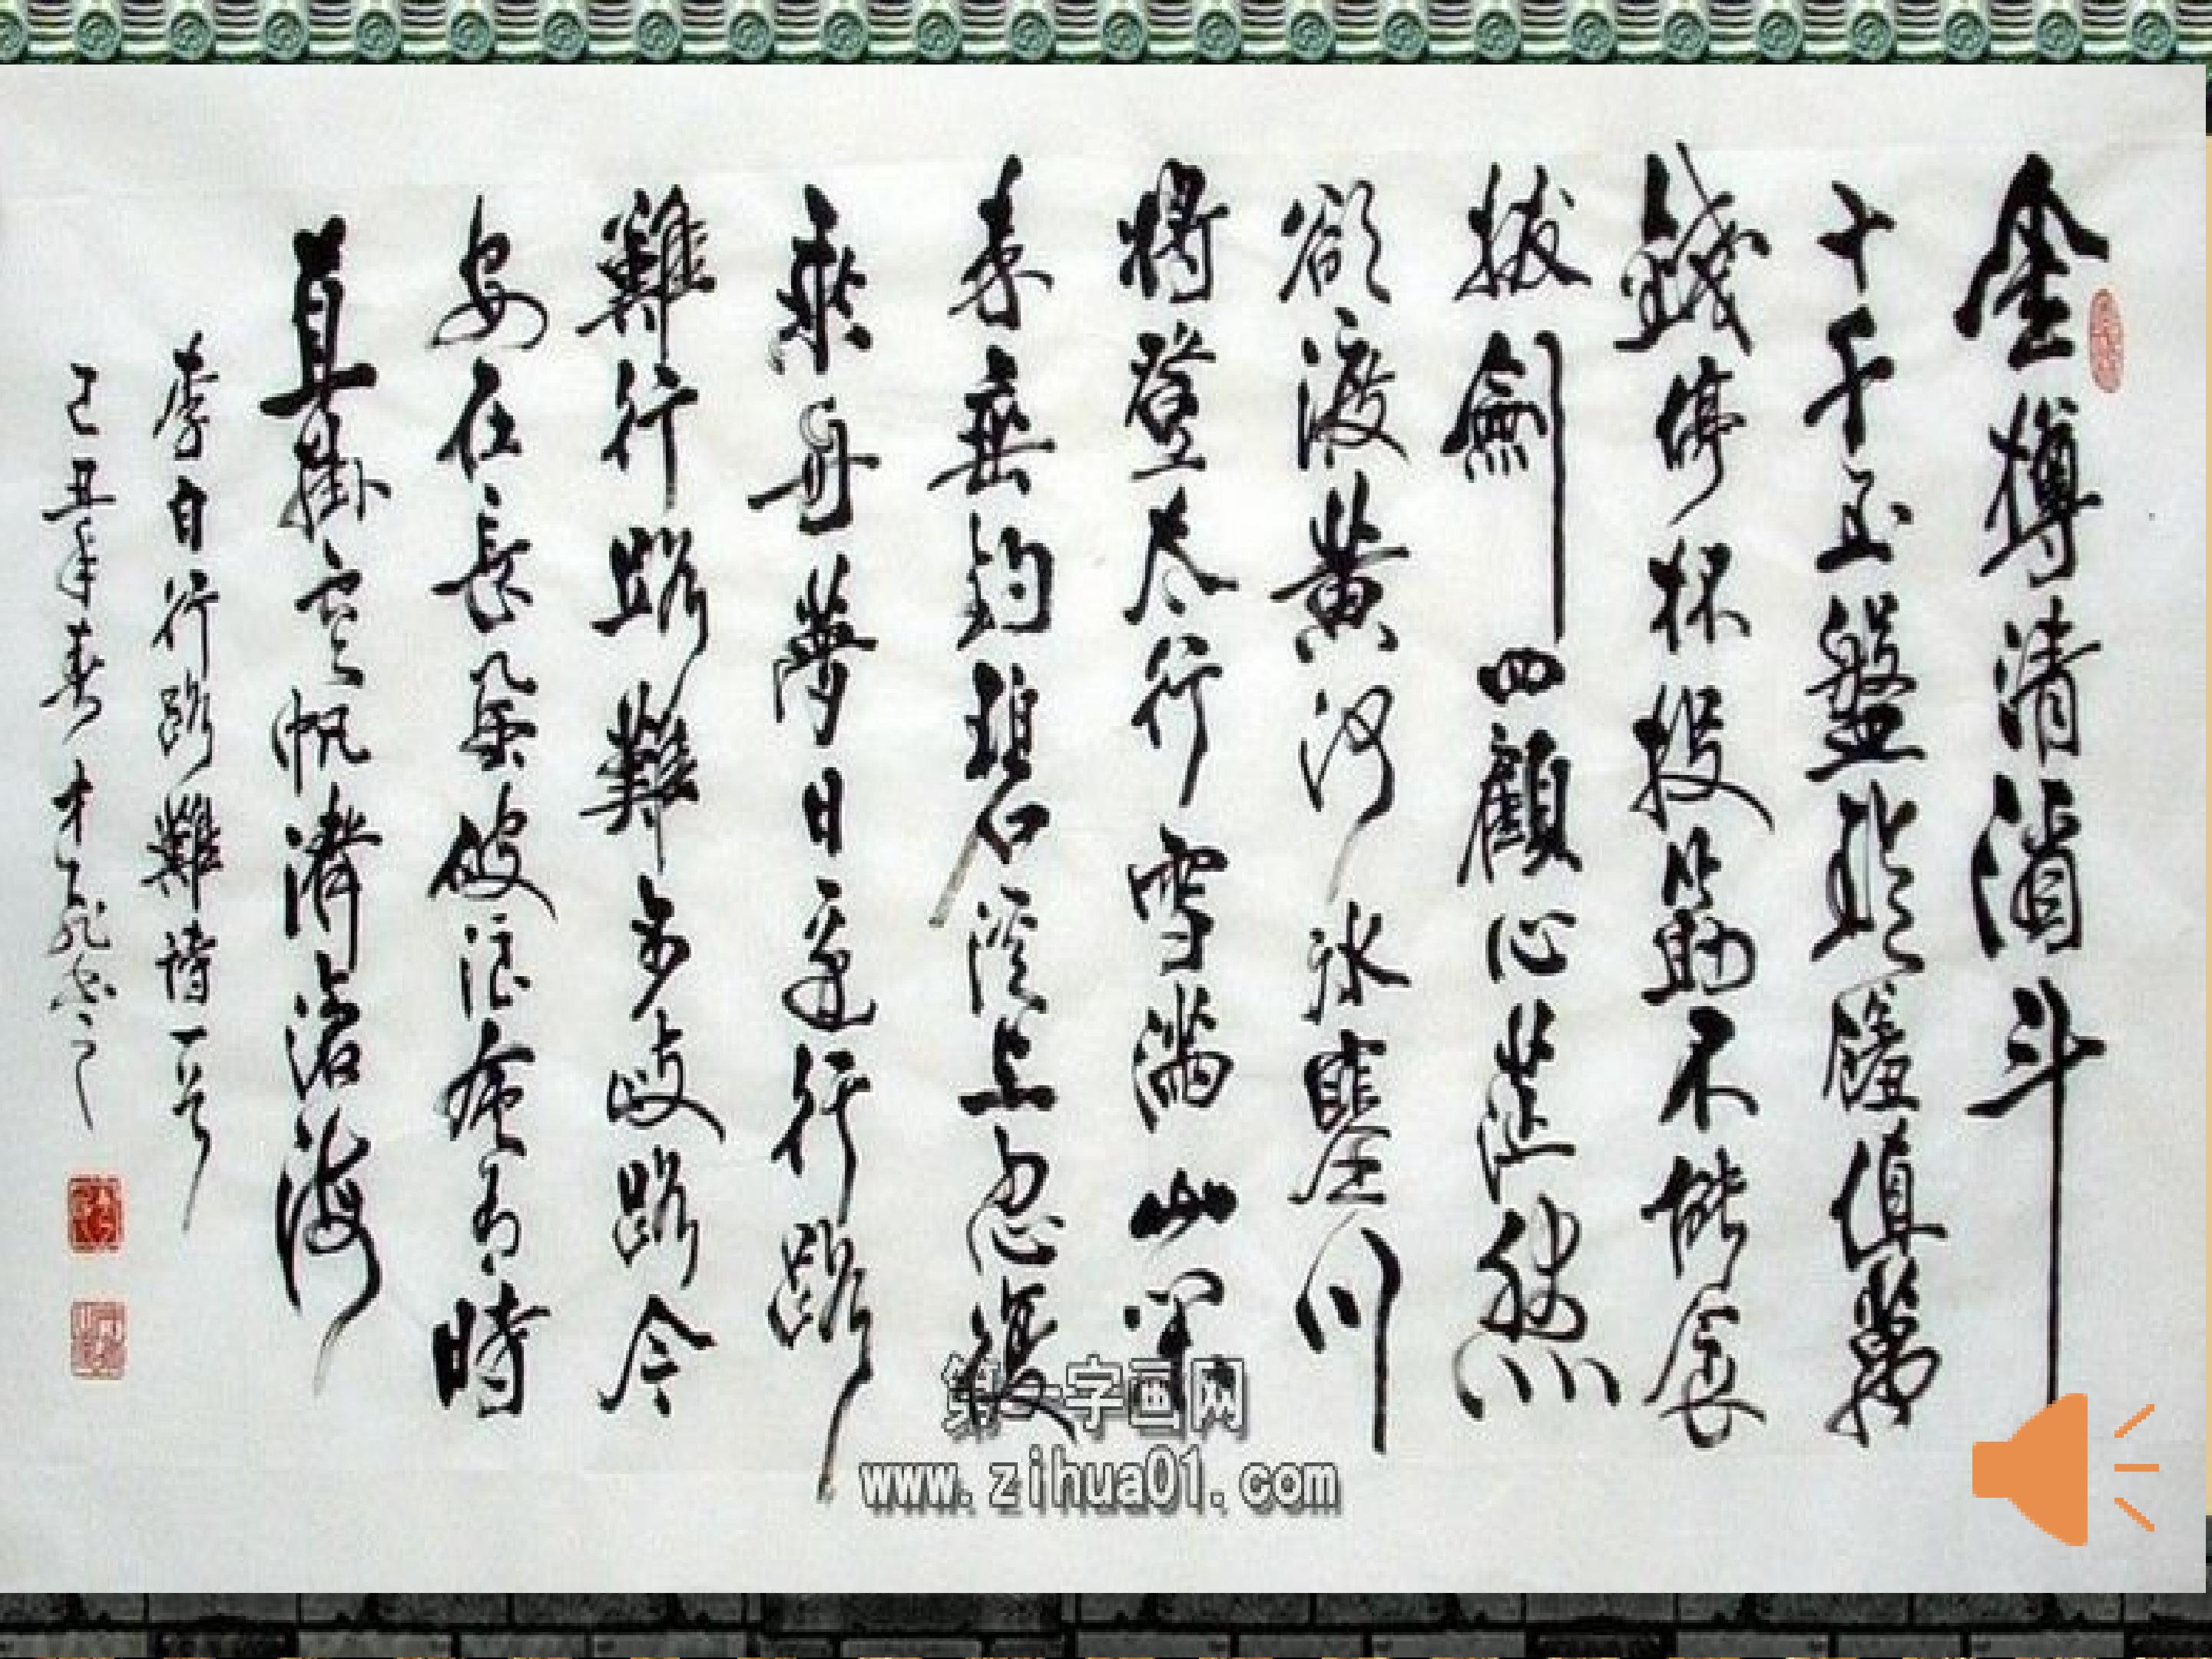 金樽清酒斗
十千玉盤珍饈值萬
錢停杯投筯不能食
拔劍四顧心茫然
欲渡黄河冰塞川
將登太行雪滿山閑
來垂釣碧溪上忽復
乘舟夢日邊行路
難行路難多歧路今
安在長風破浪會有時
直掛雲帆濟滄海
李白行路難詩一首
己丑年春才
第一字画网
www.zihua01.com